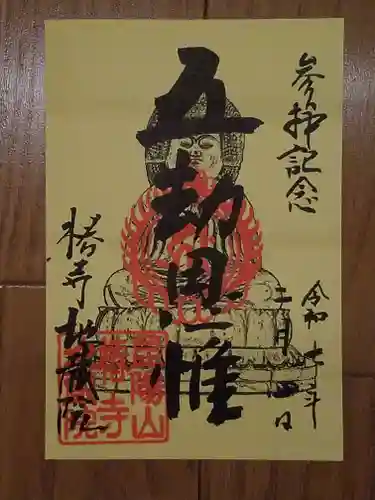 参拝記念
令和七年
月
日
五劫思惟
椿寺地蔵院
昆陽山
椿寺
地蔵院